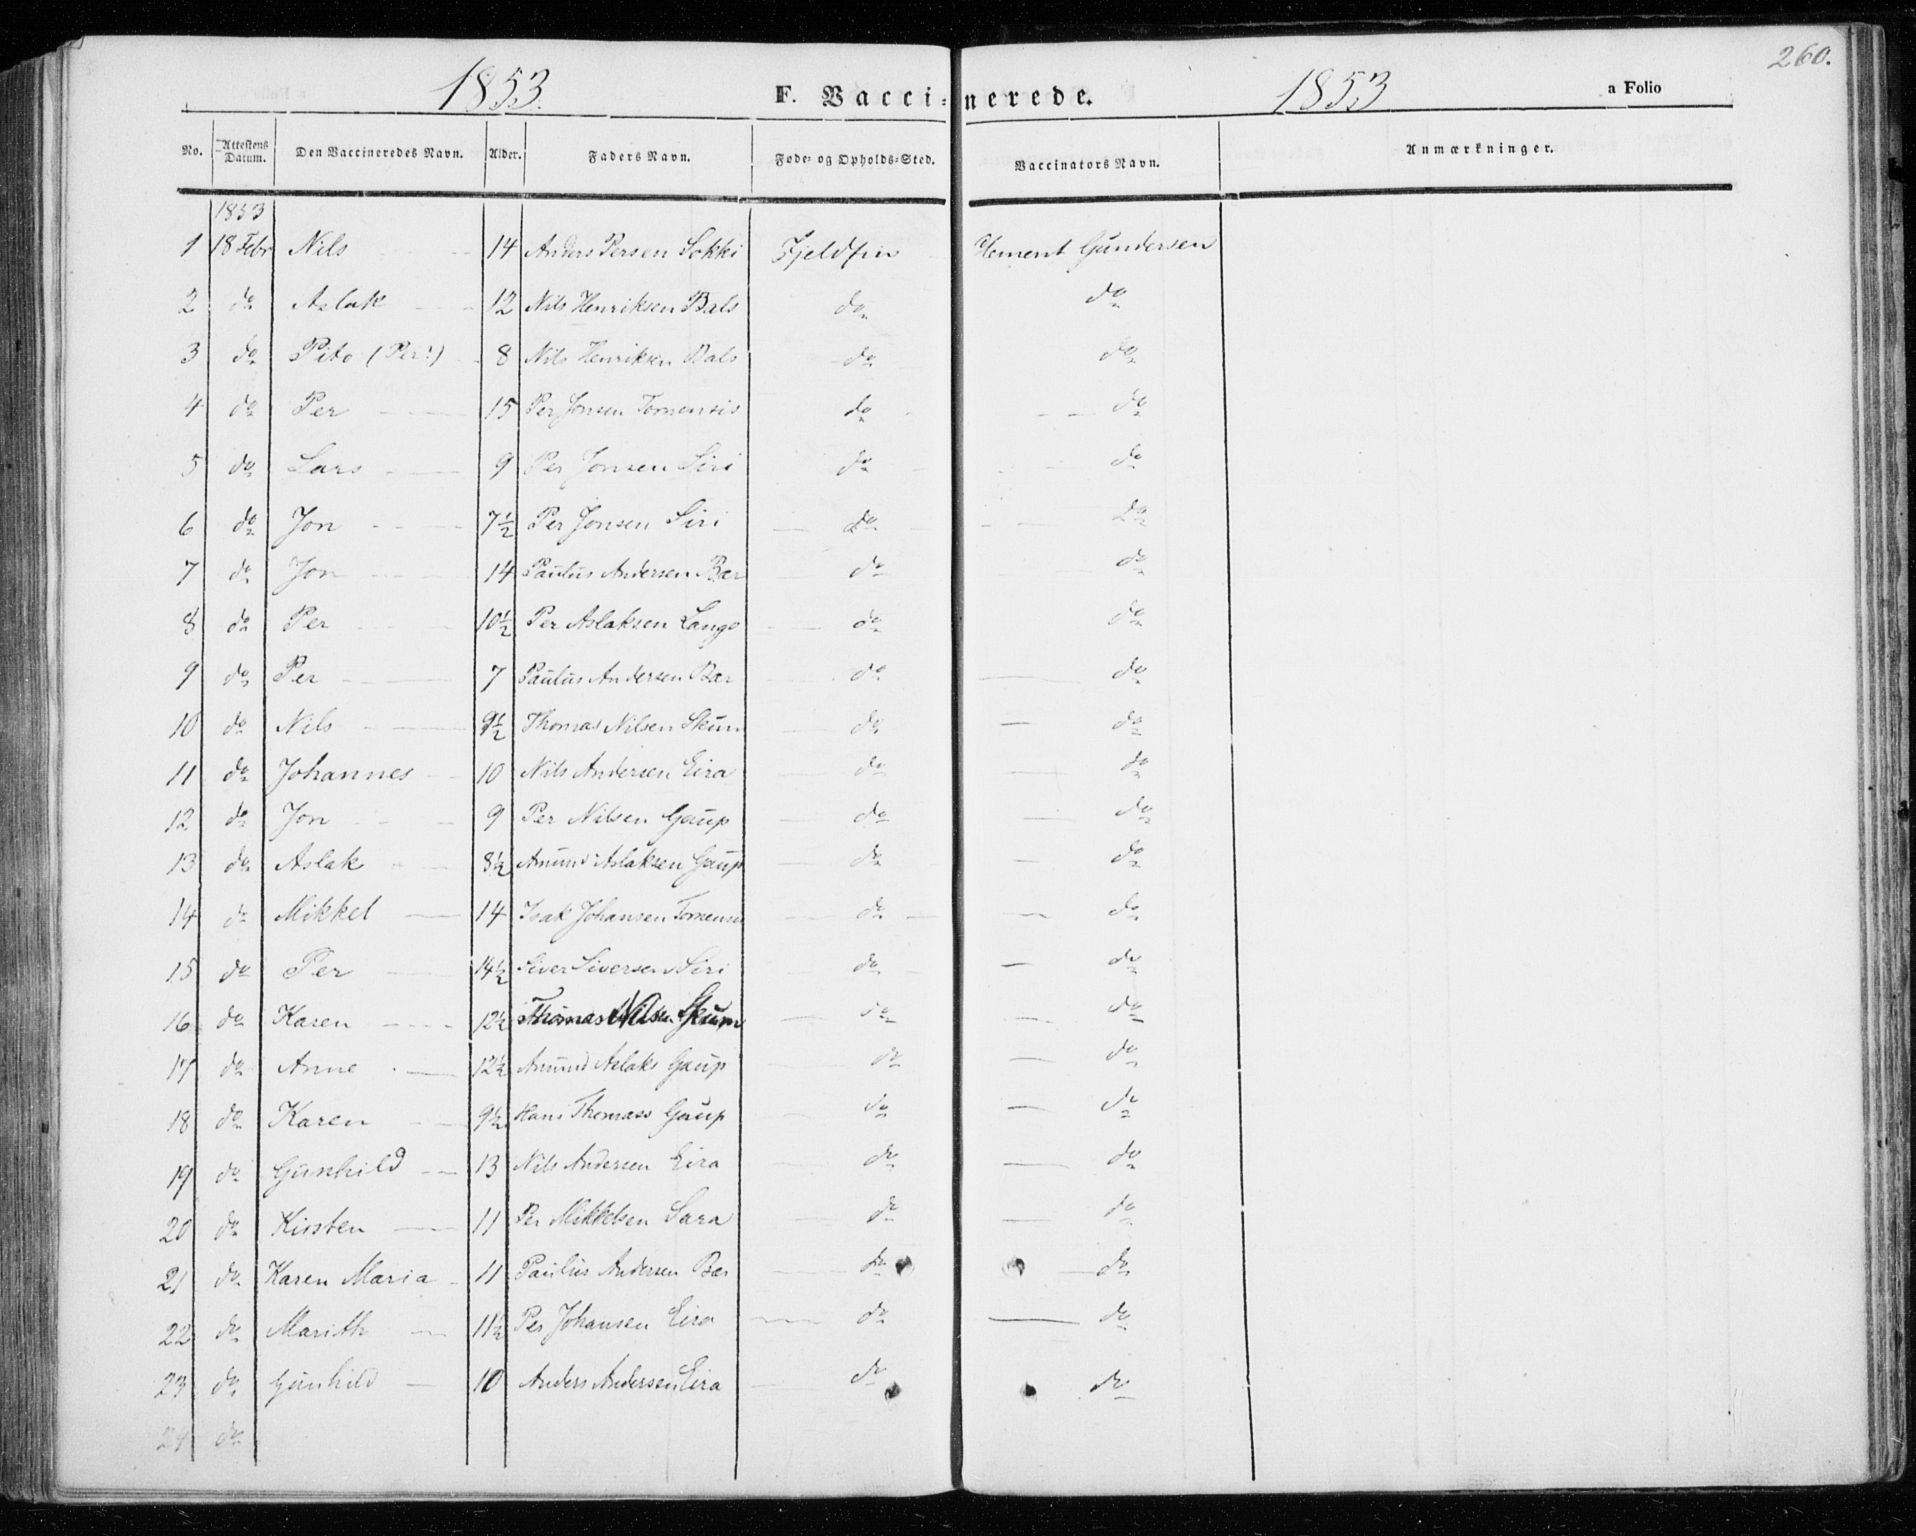 260.
1853. F. Vaccinerede. 1853 a Folio
No. Attestens Datum. Den Vaccineredes Navn. Alder. Faders Navn. Føde- og Opholds-Sted. Vaccinators Navn. Anmærkninger.
1853
1 18 Febr Nils 14 Anders Persen Sokki Fjeldfin Klement Gundersen
2 do Aslak 12 Nils Henriksen Bals do do
3 do Pito (Per!) 8 Nils Henriksen Bals do do
4 do Per 15 Per Jonsen Tornensis do do
5 do Lars 9 Per Jonsen Siri do do
6 do Jon 7½ Per Jonsen Siri do do
7 do Jon 14 Paulus Andersen Bær do do
8 do Per 10½ Per Aslaksen Lango do do
9 do Per 7 Paulus Andersen Bær do do
10 do Nils 9½ Thomas Nilsen Skum do do
11 do Johannes 10 Nils Andersen Eira do do
12 do Jon 9 Per Nilsen Gaup do do
13 do Aslak 8½ Amund Aslaksen Gaup do do
14 do Mikkel 14 Isak Johansen Tornensis do do
15 do Per 14½ Siver Siversen Siri do do
16 do Karen 12½ Thomas Nilsen Skum do do
17 do Anne 12½ Amund Aslaks Gaup do do
18 do Karen 9½ Hans Thomass Gaup do do
19 do Gunhild 13 Nils Andersen Eira do do
20 do Kirsten 11 Per Mikkelsen Sara do do
21 do Karen Maria 11 Paulus Andersen Bær do do
22 do Marith 11½ Per Johansen Eira do do
23 do Gunhild 10 Anders Andersen Eira do do
24 do